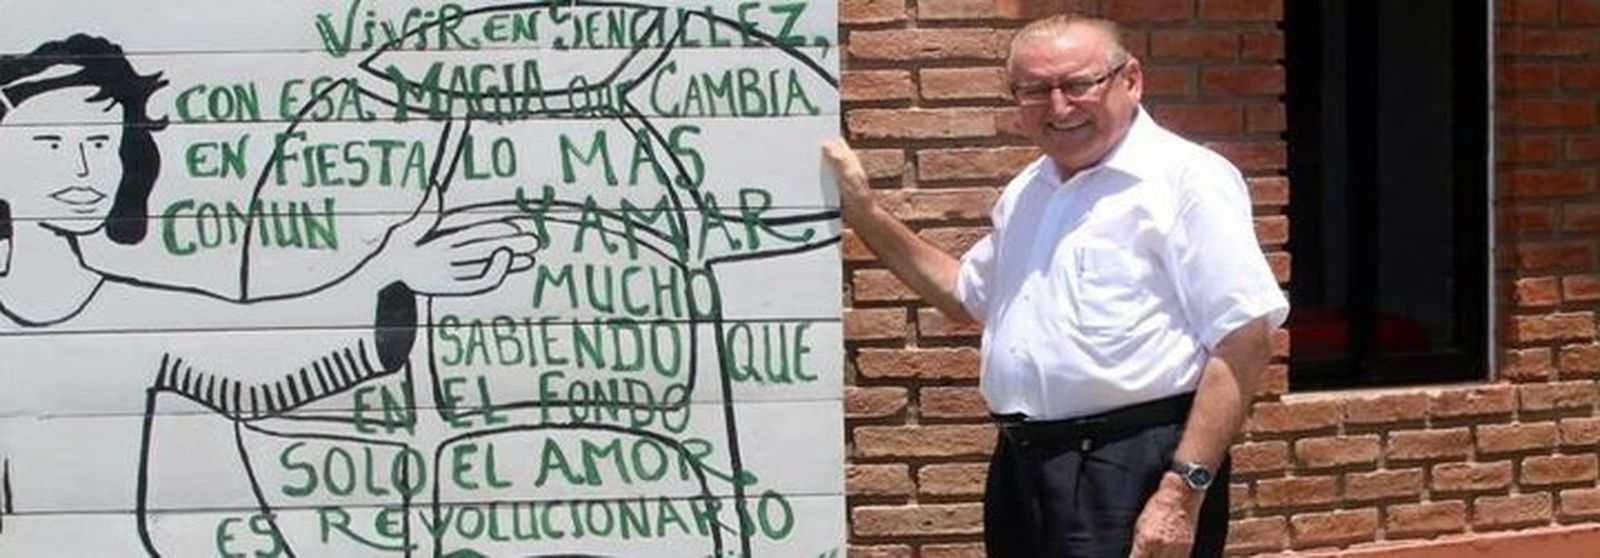 ViViR EN SENCILLEZ,
CON ESA MAGIA QUE CAMBIA
EN FIESTA LO MAS
COMUN Y AMAR
MUCHO
SABIENDO QUE
EN EL FONDO
SOLO EL AMOR
ES REVOLUCIONARIO